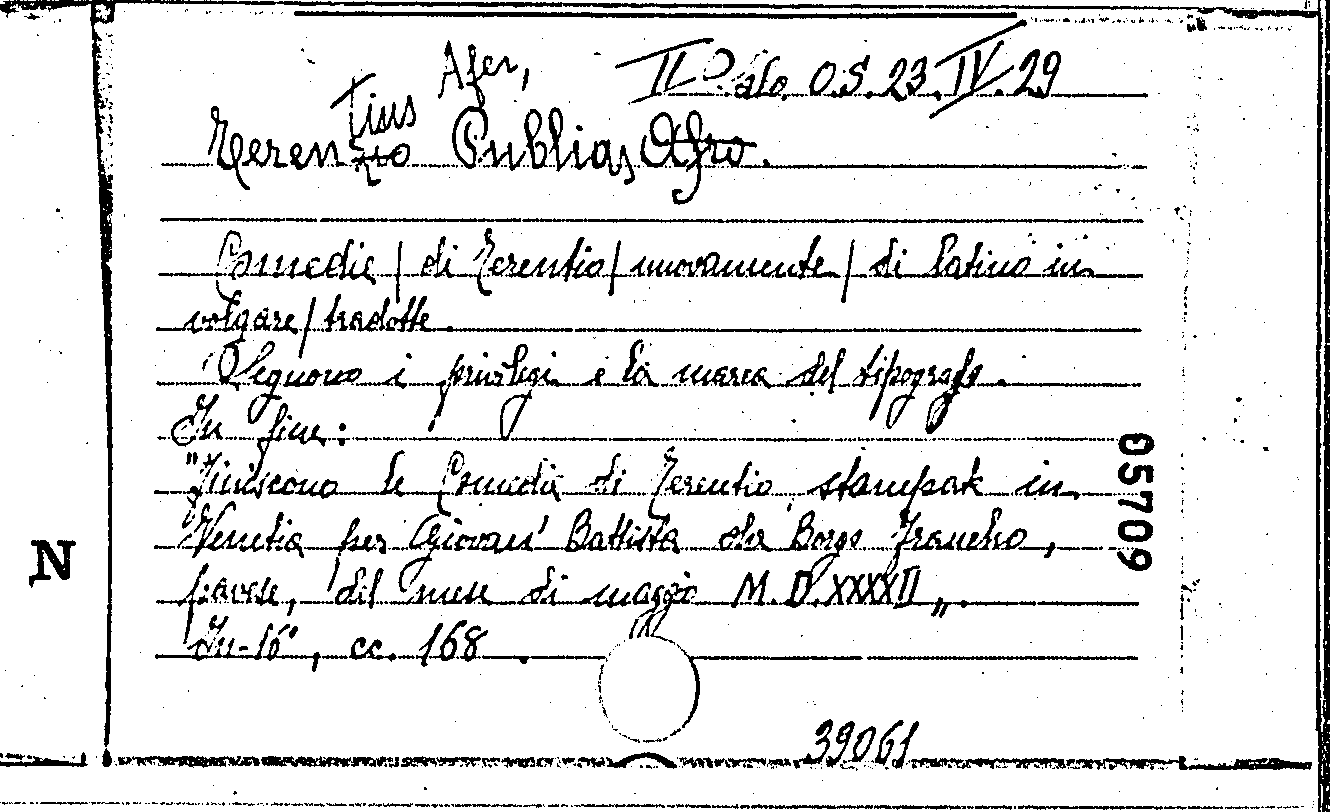 Afer, II O.S. 23.IV.29
tius
Terenzio Publias Afro.
Comedie / di Terentio / nuovamente / di latino in
volgare / tradotte.
Seguono i privilegi e la marca del tipografo.
In fine:
"Finiscono le Comedie di Terentio, stampate in
Venetia per Giovan' Battista da Borgo Francho,
pavese, del mese di maggio M.D.XXXXII".
In-16°, cc. 168.
39061
05709
N